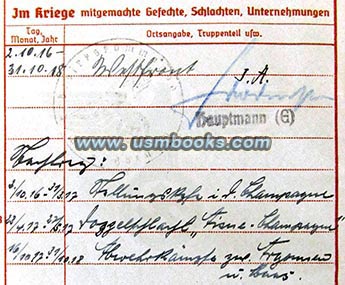 Im Kriege mitgemachte Gefechte, Schlachten, Unternehmungen
Tag, Monat, Jahr
Ortsangabe, Truppenteil usw.
2.10.16 –
31.10.18 Westfront
I.A.
Hauptmann (E)
www.usmbooks.com
Nachtrag:
Stellungskpfe i. d. Champagne
Doppelschlacht „Aisne-Champagne"
Abwehrkämpfe zw. Argonnen
u. Maas.